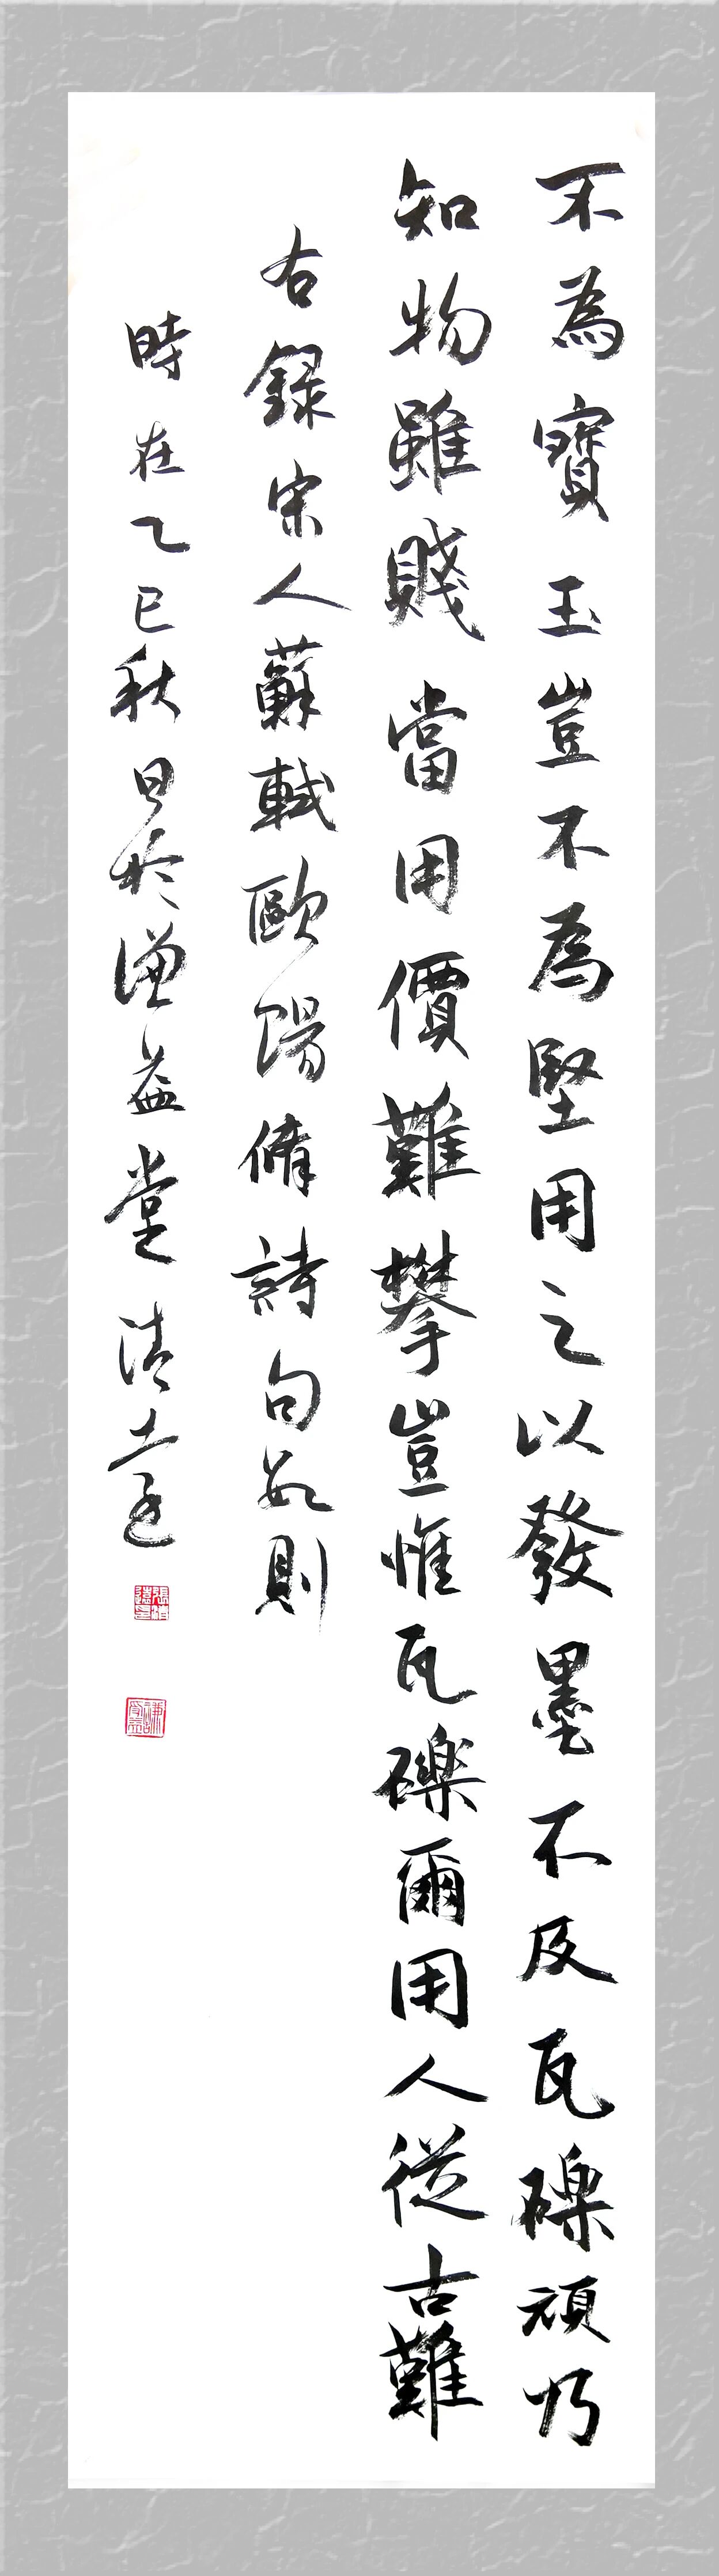 不為寶玉豈不為堅用之以發墨不及瓦礫頑乃
知物雖賤當用價難攀豈惟瓦礫爾用人從古難
右錄宋人蘇軾歐陽脩詩句數則
時在乙巳秋日於謙益堂清遠